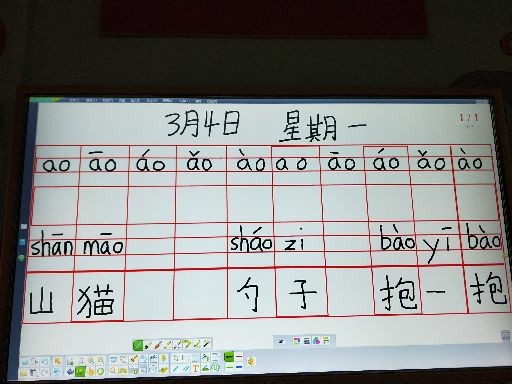 3月4日 星期一
1/1
ao āo áo ǎo ào ao āo áo ǎo ào
shān māo sháo zi bào yī bào
山 猫 勺 子 抱 一 抱